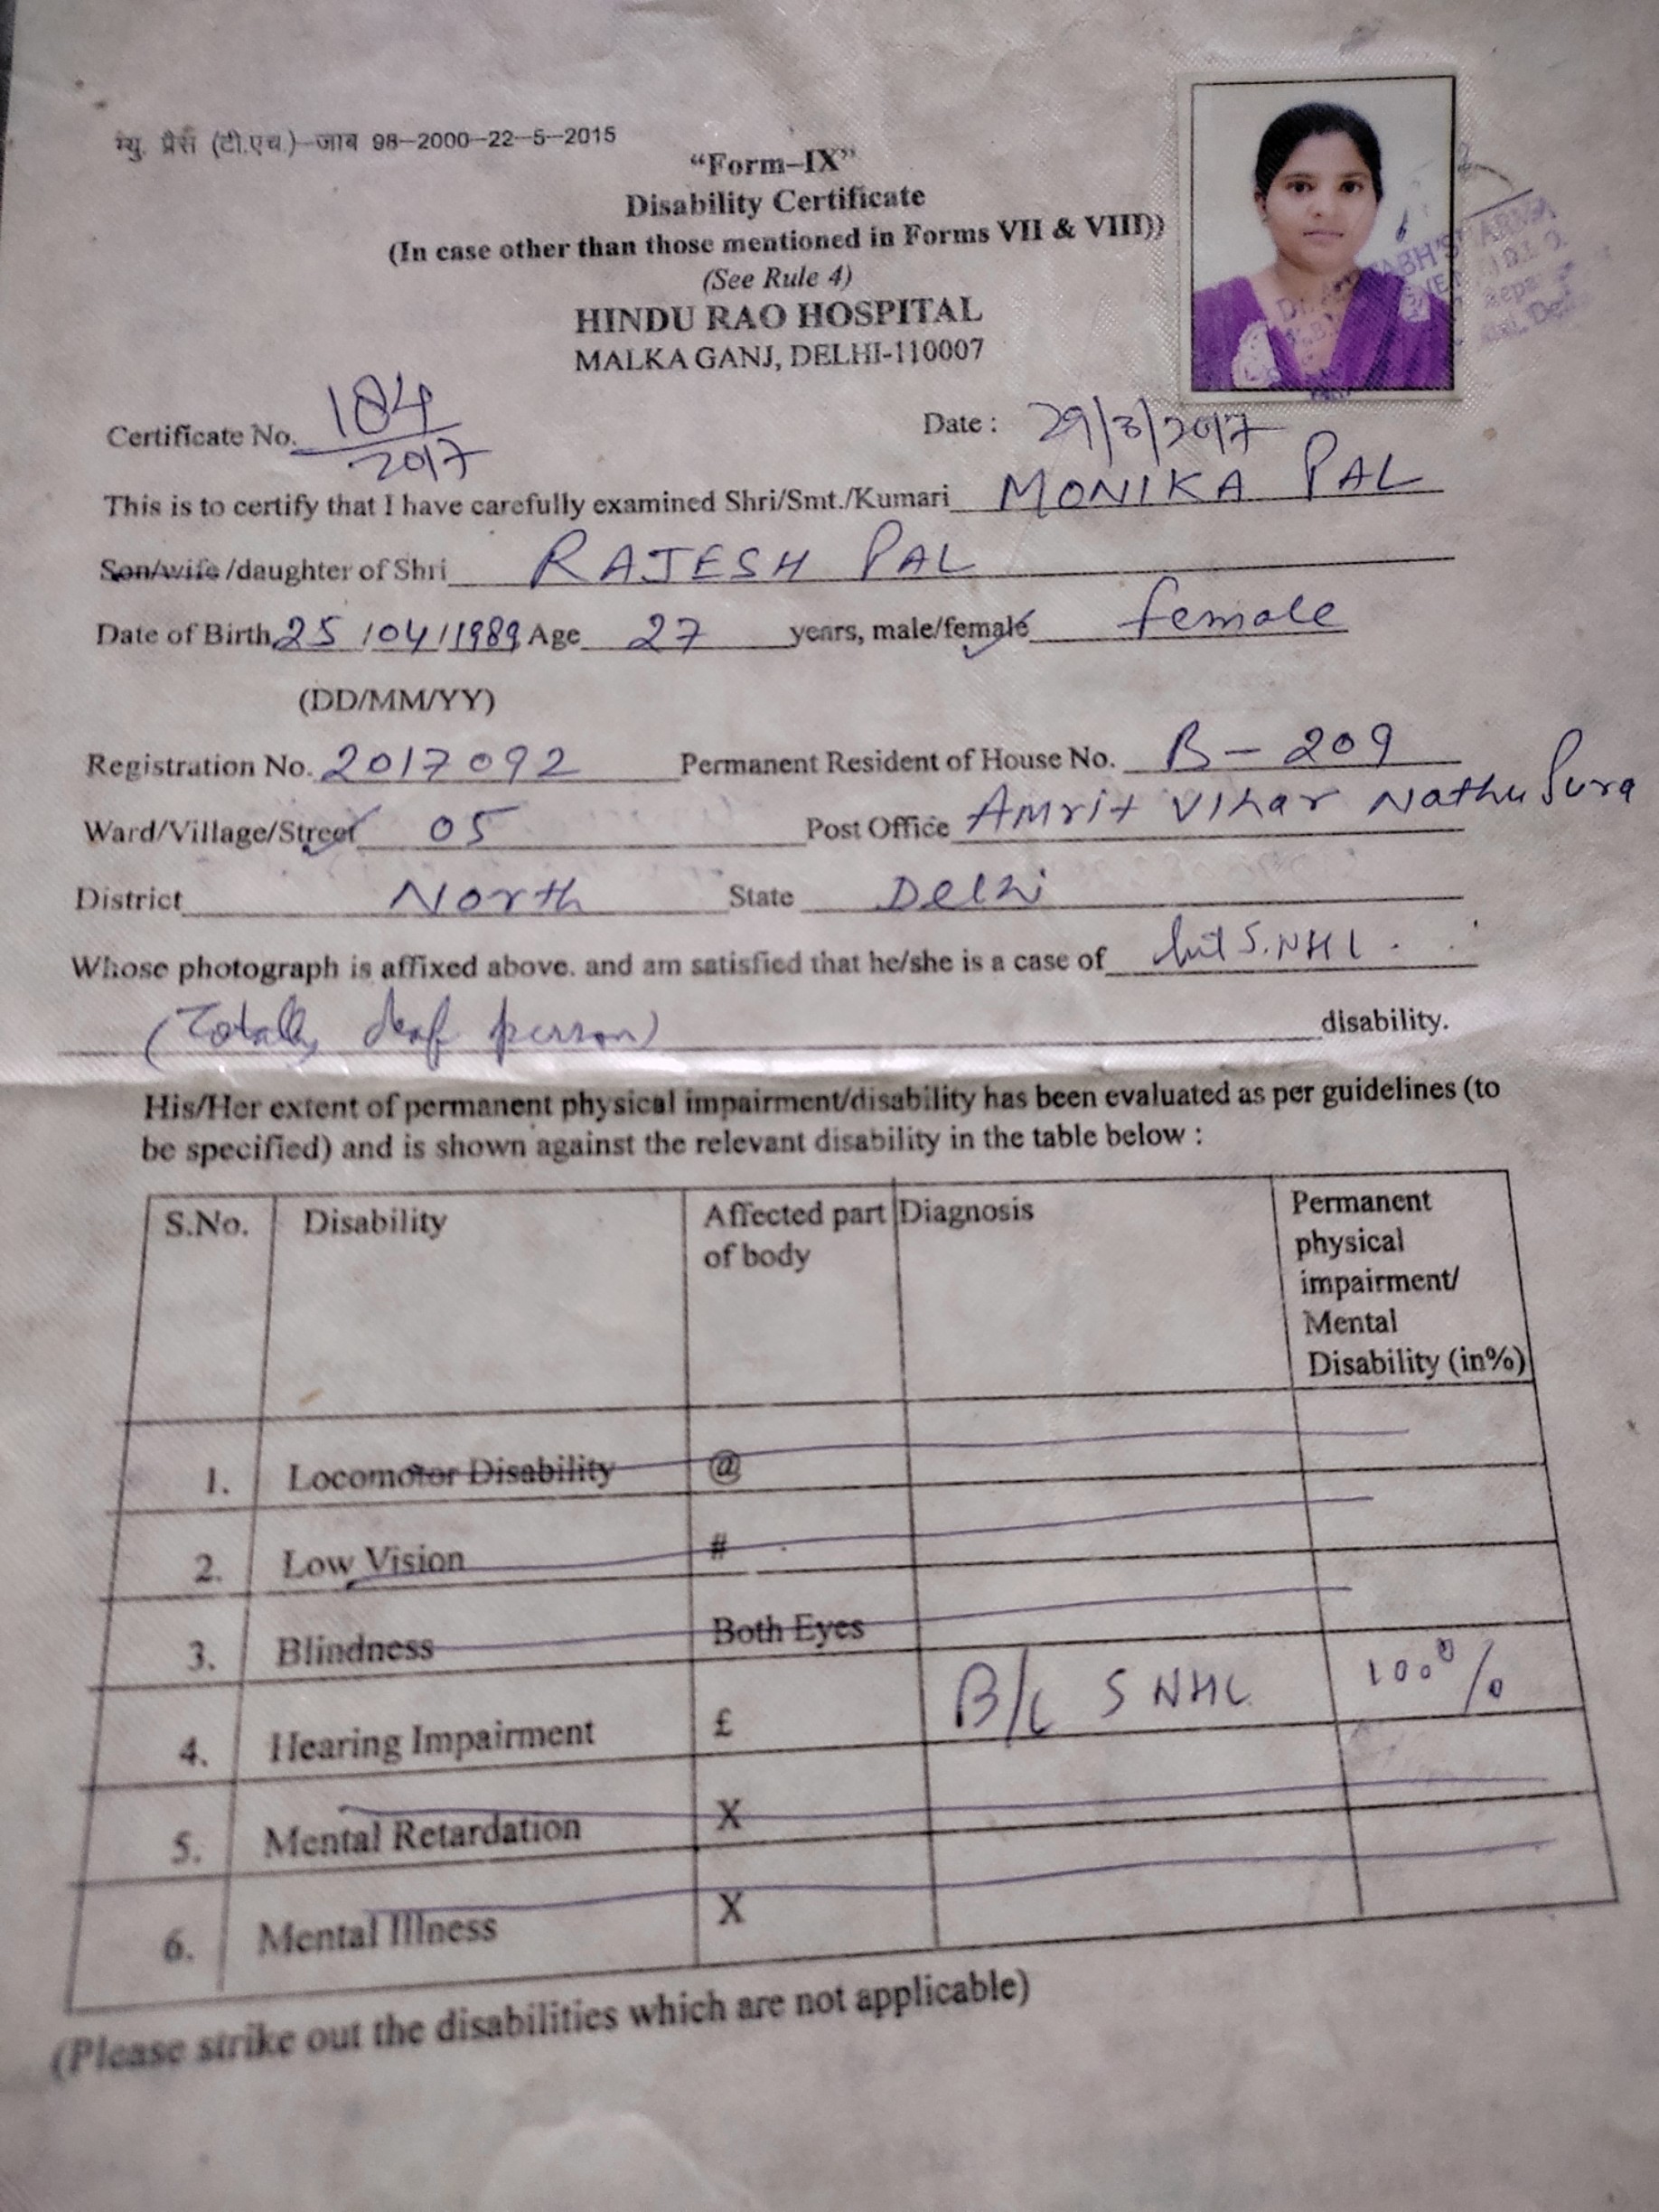 न्यु. प्रैस (टी.एच.)–जाब 98–2000–22–5–2015
“Form–IX”
Disability Certificate
(In case other than those mentioned in Forms VII & VIII))
(See Rule 4)
HINDU RAO HOSPITAL
MALKA GANJ, DELHI-110007
Certificate No. 184/2017 Date : 29/3/2017
This is to certify that I have carefully examined Shri/Smt./Kumari MONIKA PAL
Son/wife /daughter of Shri RAJESH PAL
Date of Birth 25/04/1989 Age 27 years, male/female female
(DD/MM/YY)
Registration No. 2017092 Permanent Resident of House No. B-209
Ward/Village/Street 05 Post Office Amrit Vihar Nathu Pura
District North State Delhi
Whose photograph is affixed above. and am satisfied that he/she is a case of S.NHL.
(Totally deaf person) disability.
His/Her extent of permanent physical impairment/disability has been evaluated as per guidelines (to
be specified) and is shown against the relevant disability in the table below :
S.No. Disability Affected part of body Diagnosis Permanent physical impairment/ Mental Disability (in%)
1. Locomotor Disability @
2. Low Vision #
3. Blindness Both Eyes
4. Hearing Impairment £ B/L SNHL 100%
5. Mental Retardation X
6. Mental Illness X
(Please strike out the disabilities which are not applicable)